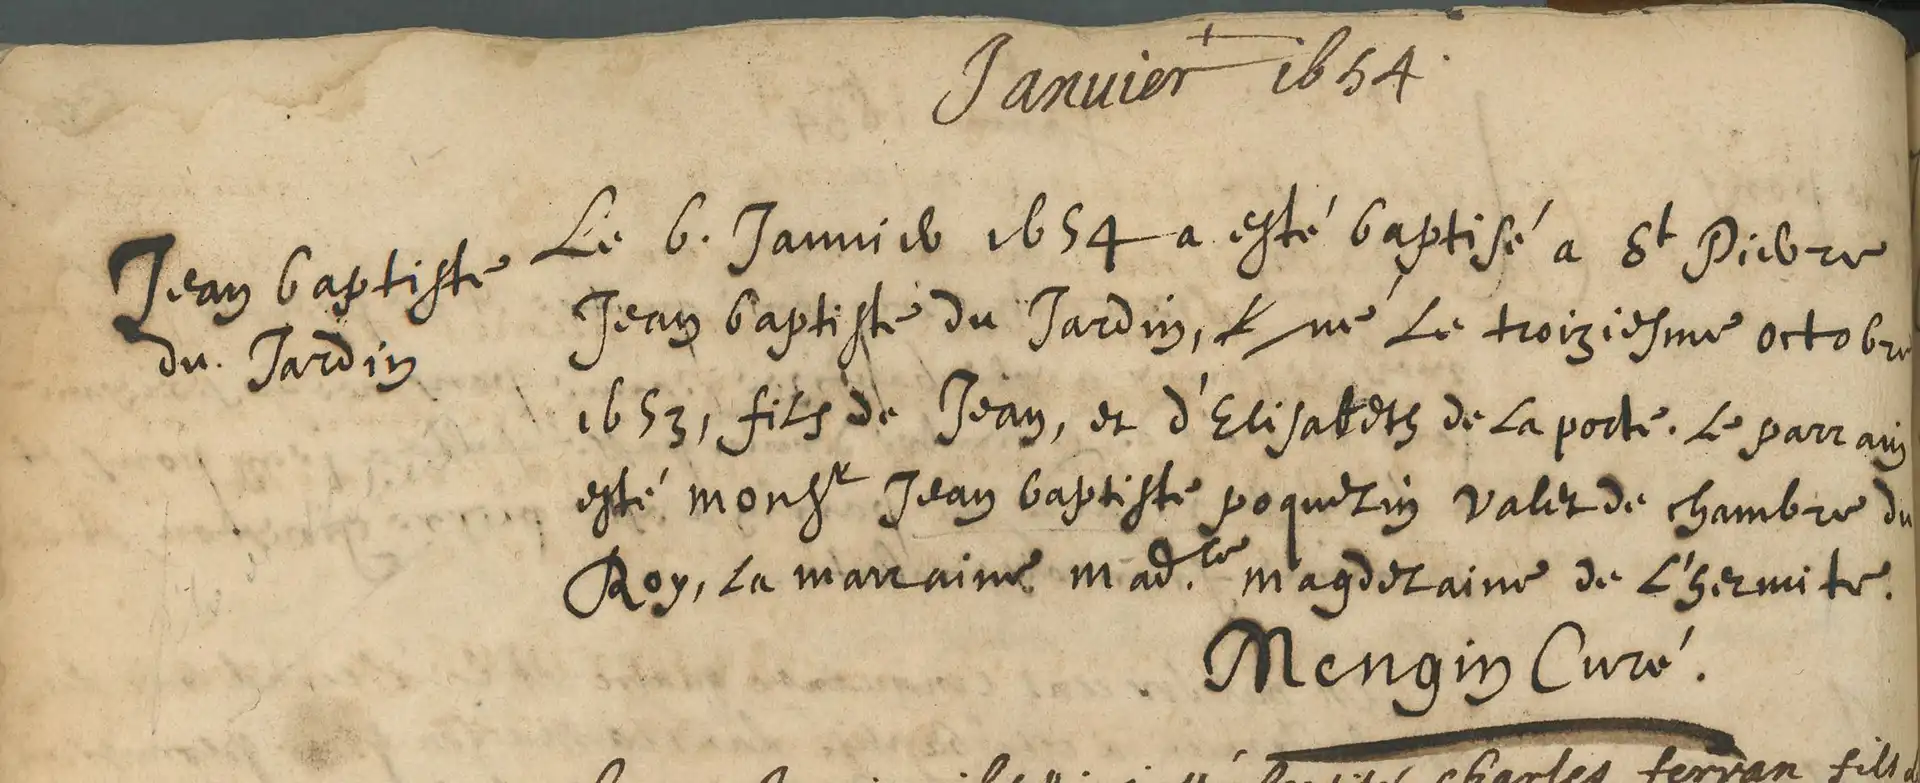 Janvier 1654.
Jean baptiste
du. Jardin
Le 6. Januier 1654 a esté baptisé a St Pierre
Jean baptiste du Jardin, né Le troiziesme octobre
1653, fils de Jean, et d'Elisabeth de La porte. Le parrain
esté monsr Jean baptiste poquelin valet de chambre du
Roy, La marraine mad.le magdelaine de L'hermite.
Mengin Curé.
charles ferran fils